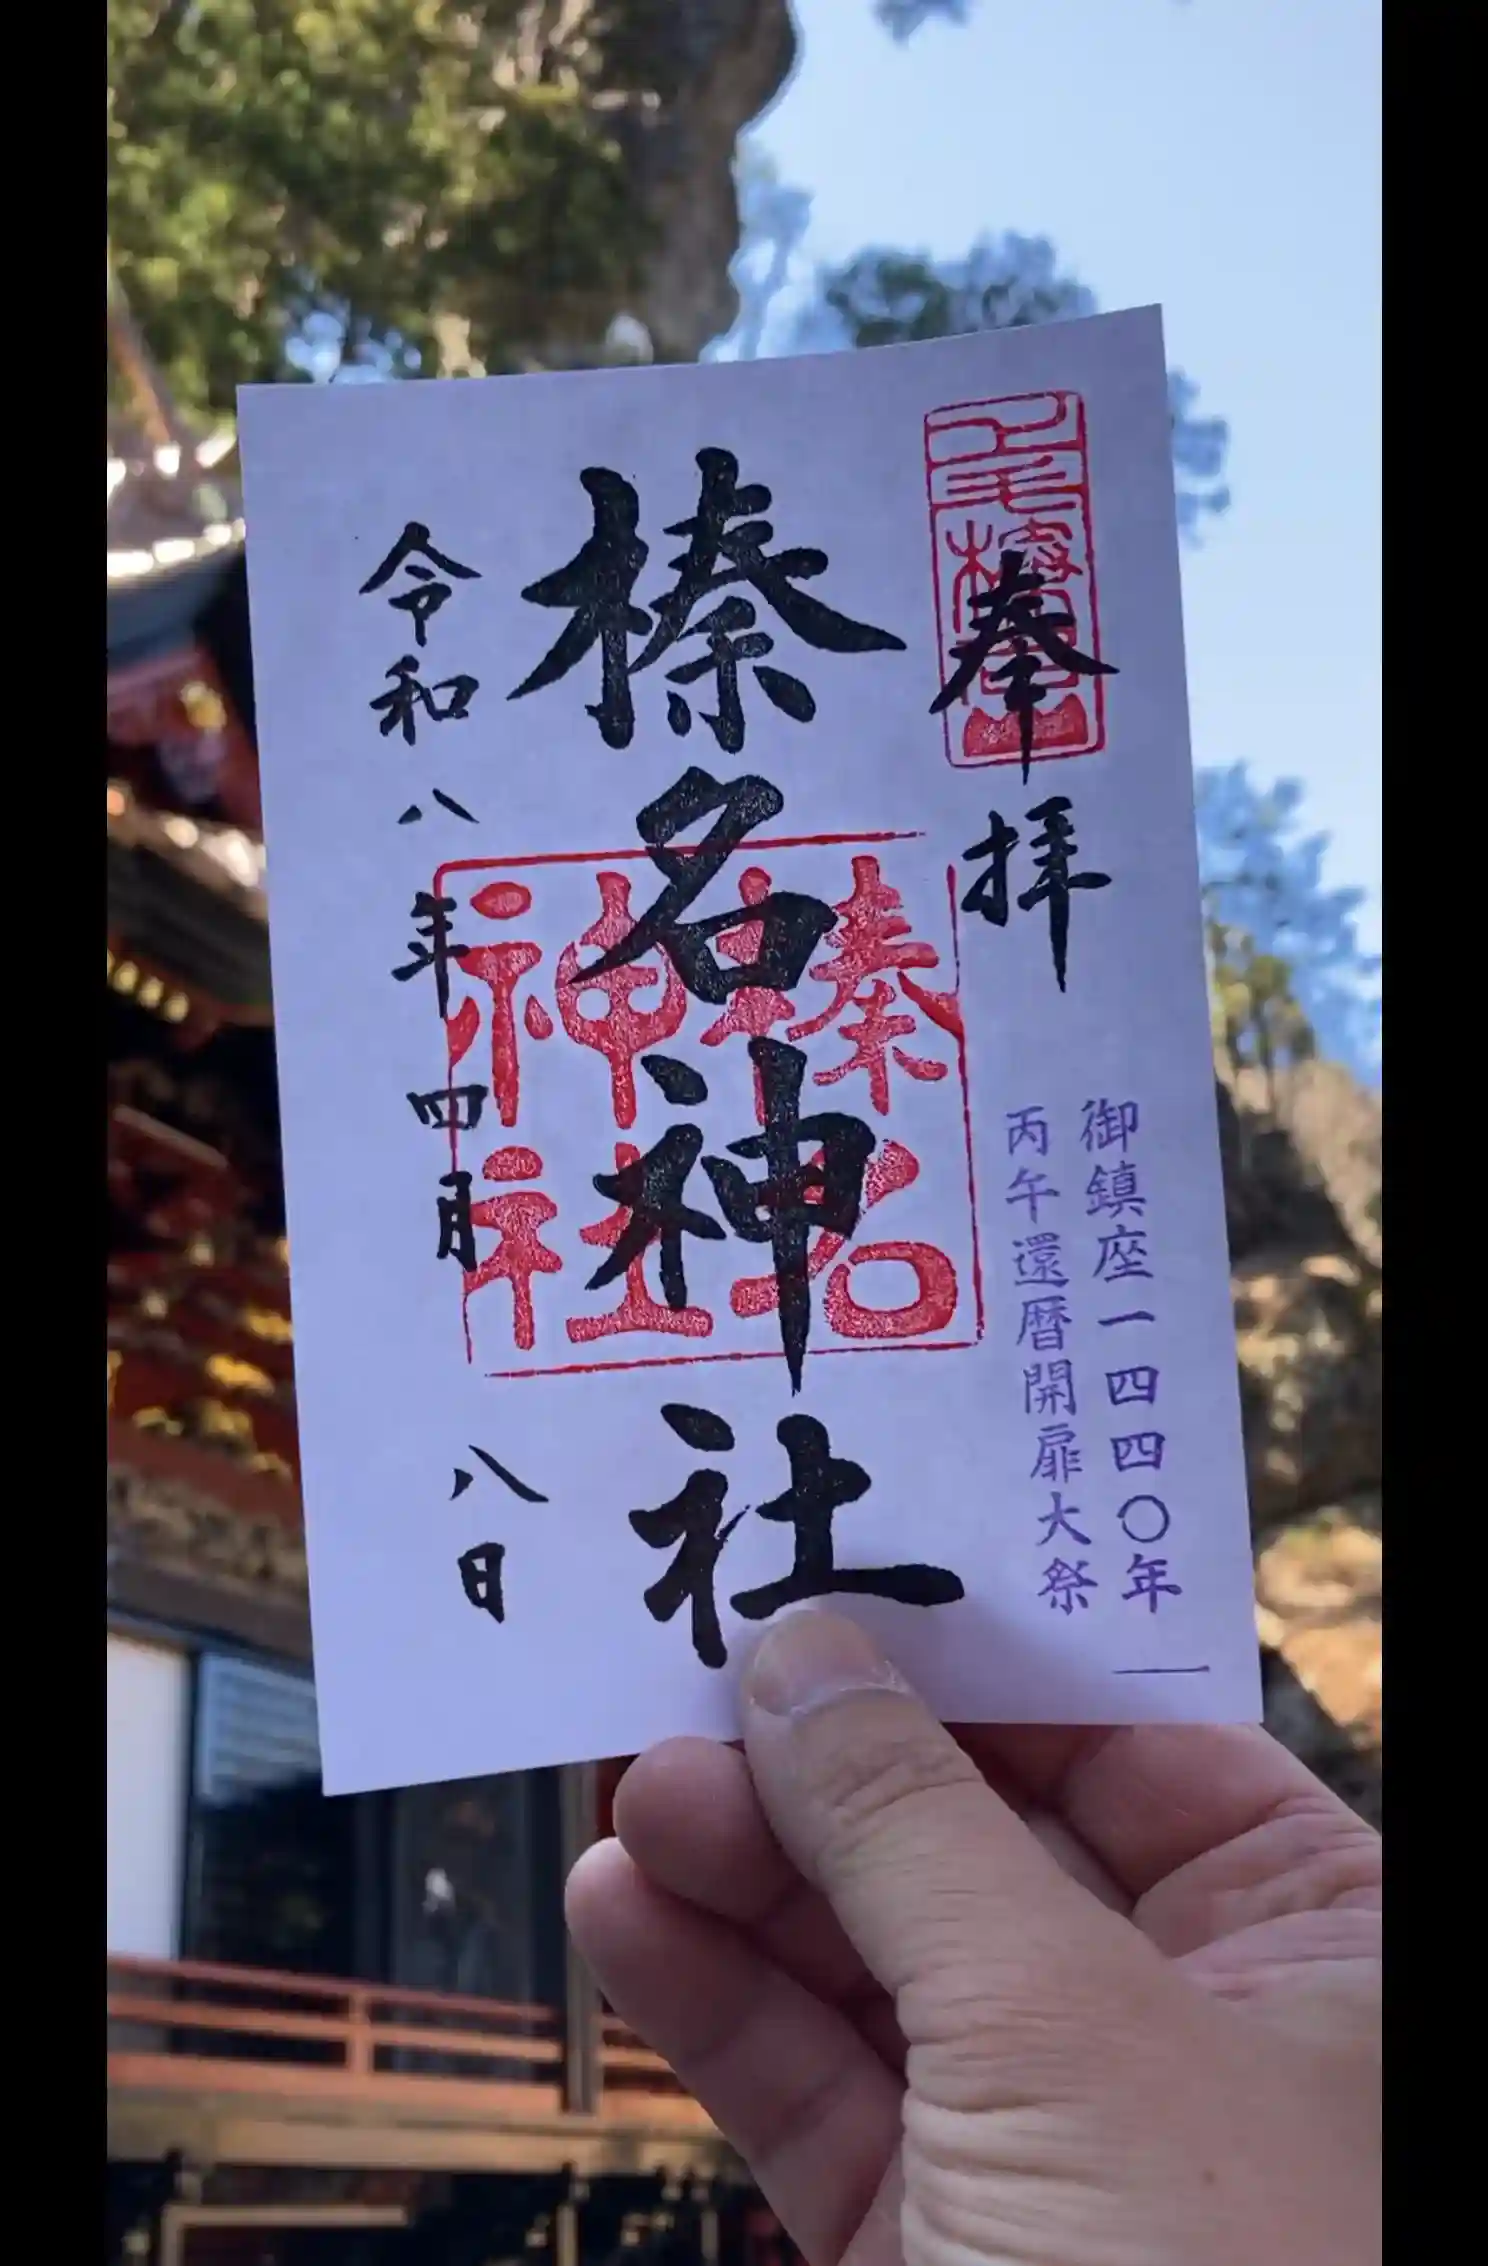 奉拝
御鎮座一四四〇年
丙午還暦開扉大祭
榛名神社
榛名神社
令和八年四月八日